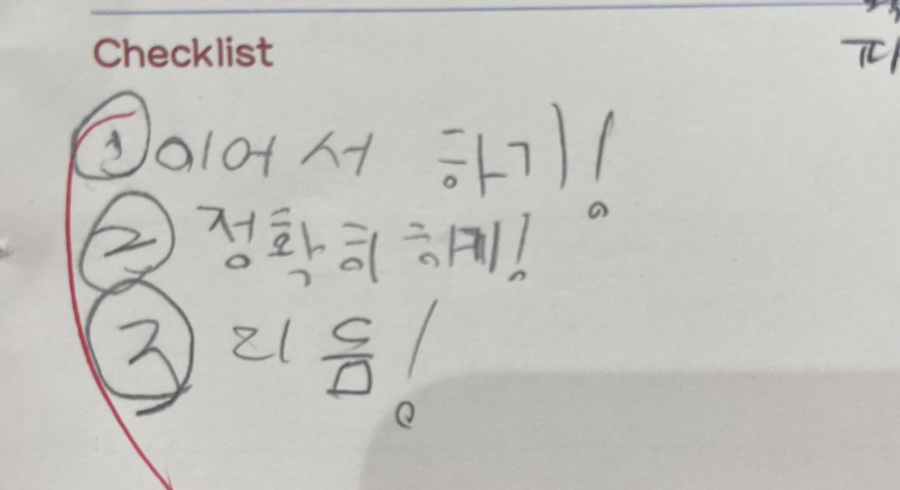 Checklist
① 이어서 하기!
② 정확히 하게!
③ 리듬!